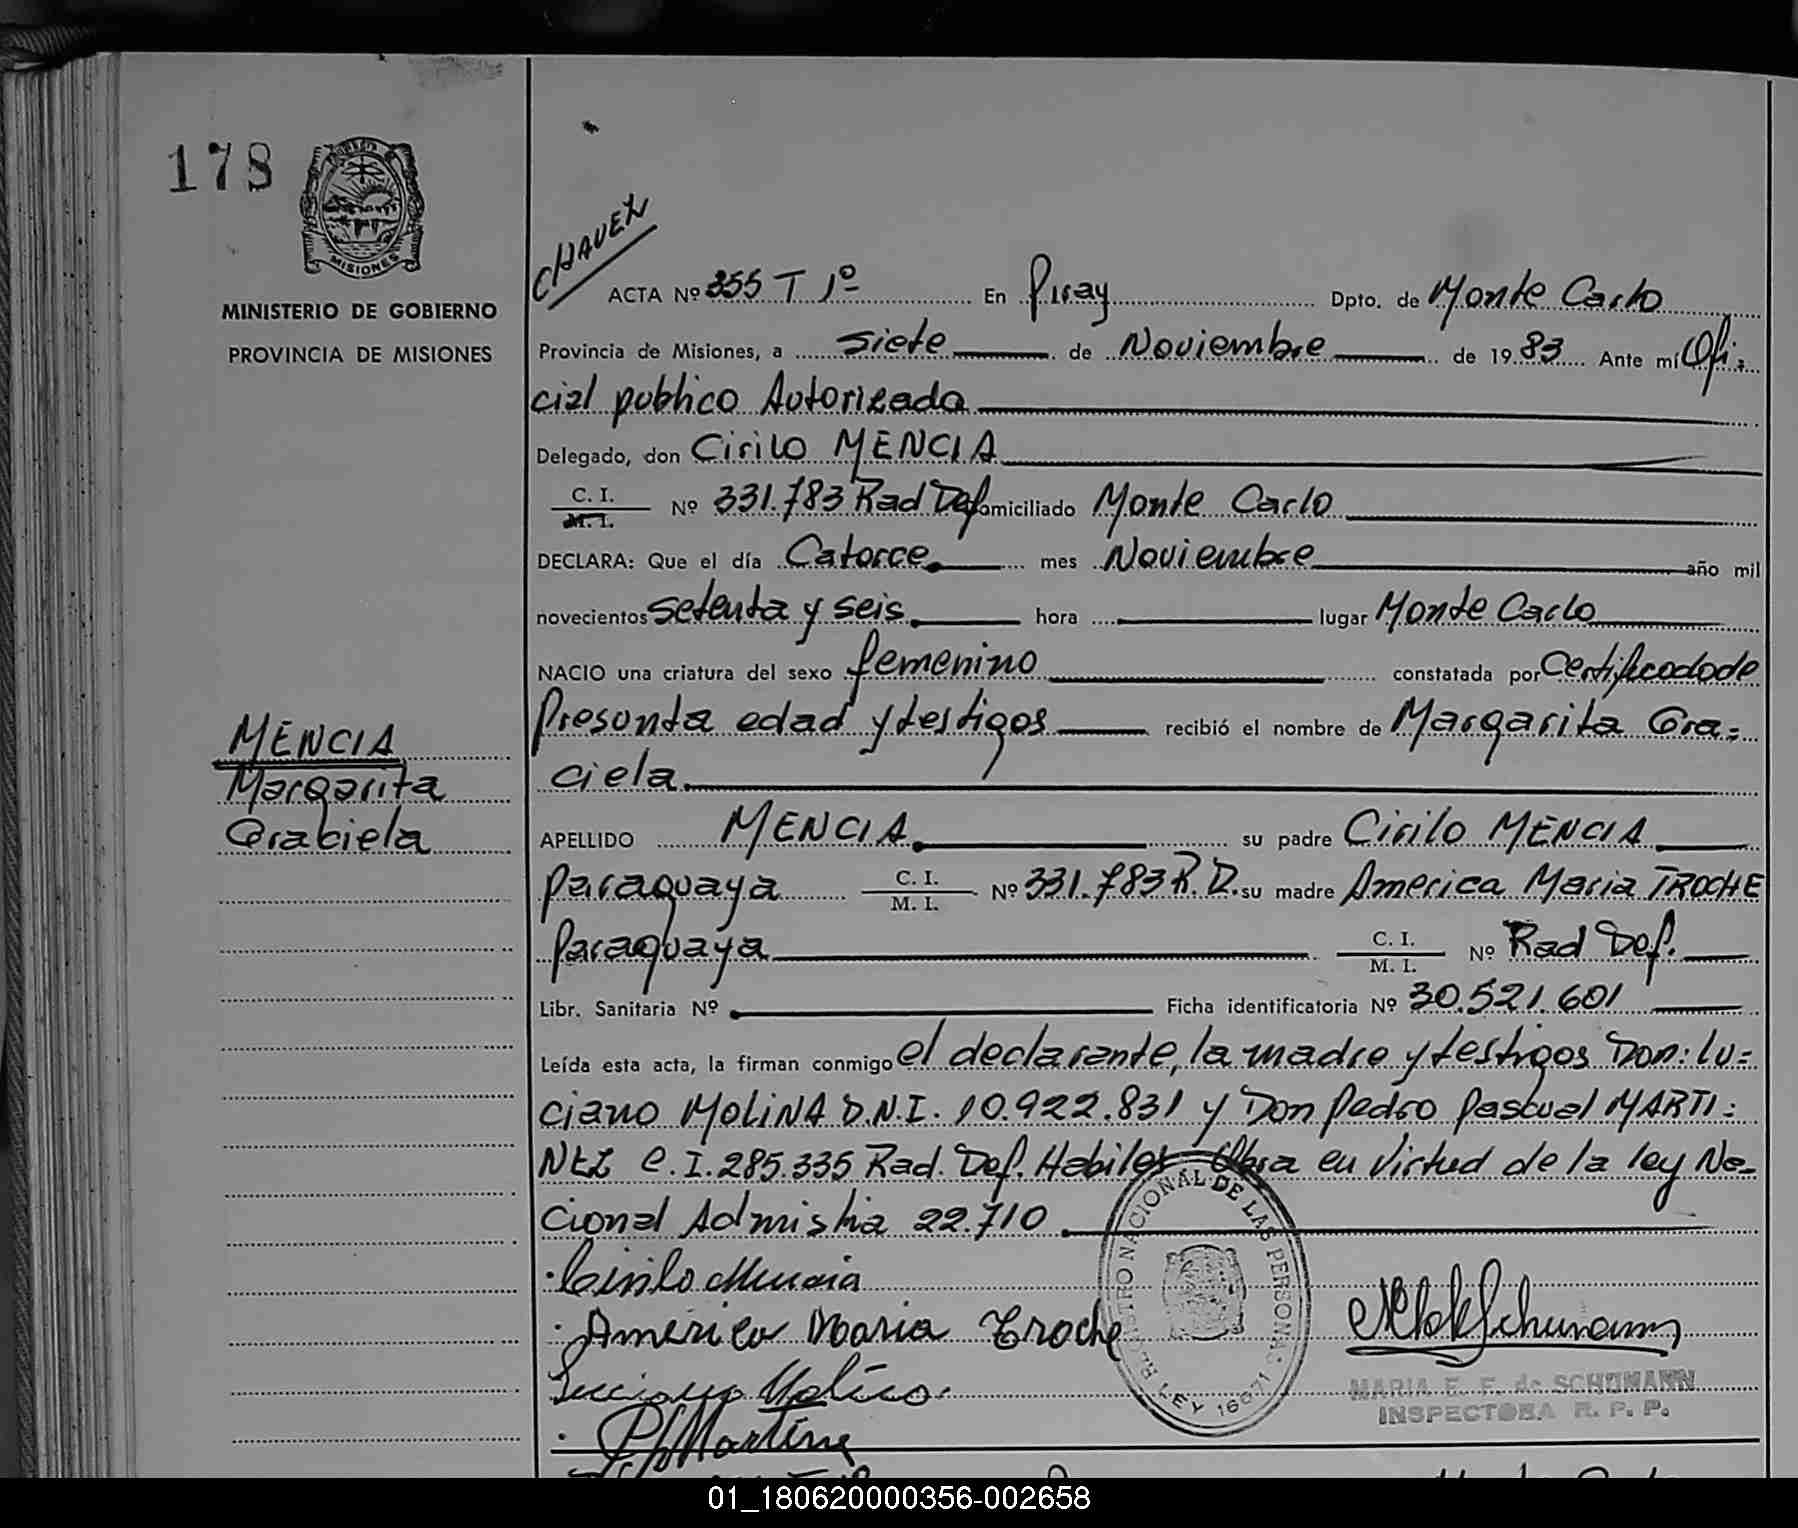 178
MISIONES
MINISTERIO DE GOBIERNO
PROVINCIA DE MISIONES
MENCIA
Margarita
Graciela
CHAVEZ
ACTA Nº 355 T 1º En Piray Dpto. de Monte Carlo
Provincia de Misiones, a siete de Noviembre de 1983 Ante mí Ofi-
cial publico Autorizada
Delegado, don Cirilo MENCIA
C. I. / M. I. Nº 331.783 Rad Def domiciliado Monte Carlo
DECLARA: Que el día Catorce mes Noviembre año mil
novecientos setenta y seis hora lugar Monte Carlo
NACIO una criatura del sexo femenino constatada por Certificado de
Presunta edad y testigos recibió el nombre de Margarita Gra=
ciela
APELLIDO MENCIA su padre Cirilo MENCIA
paraguaya C. I. / M. I. Nº 331.783 R. D. su madre America Maria TROCHE
paraguaya C. I. / M. I. Nº Rad Def.
Libr. Sanitaria Nº Ficha identificatoria Nº 30.521.601
Leída esta acta, la firman conmigo el declarante, la madre y testigos Don: Lu=
ciano MOLINA D.N.I. 10.922.831 y Don Pedro Pascual MARTI=
NEZ C.I. 285.335 Rad. Def. Habiles Obra en virtud de la ley Na-
cional Admistia 22.710
Cirilo Mencia
America Maria Troche
Luciano Molina
P Martine
REGISTRO NACIONAL DE LAS PERSONAS LEY 16671
Schumann
MARIA E. F. de SCHUMANN
INSPECTORA R. P. P.
01_180620000356-002658